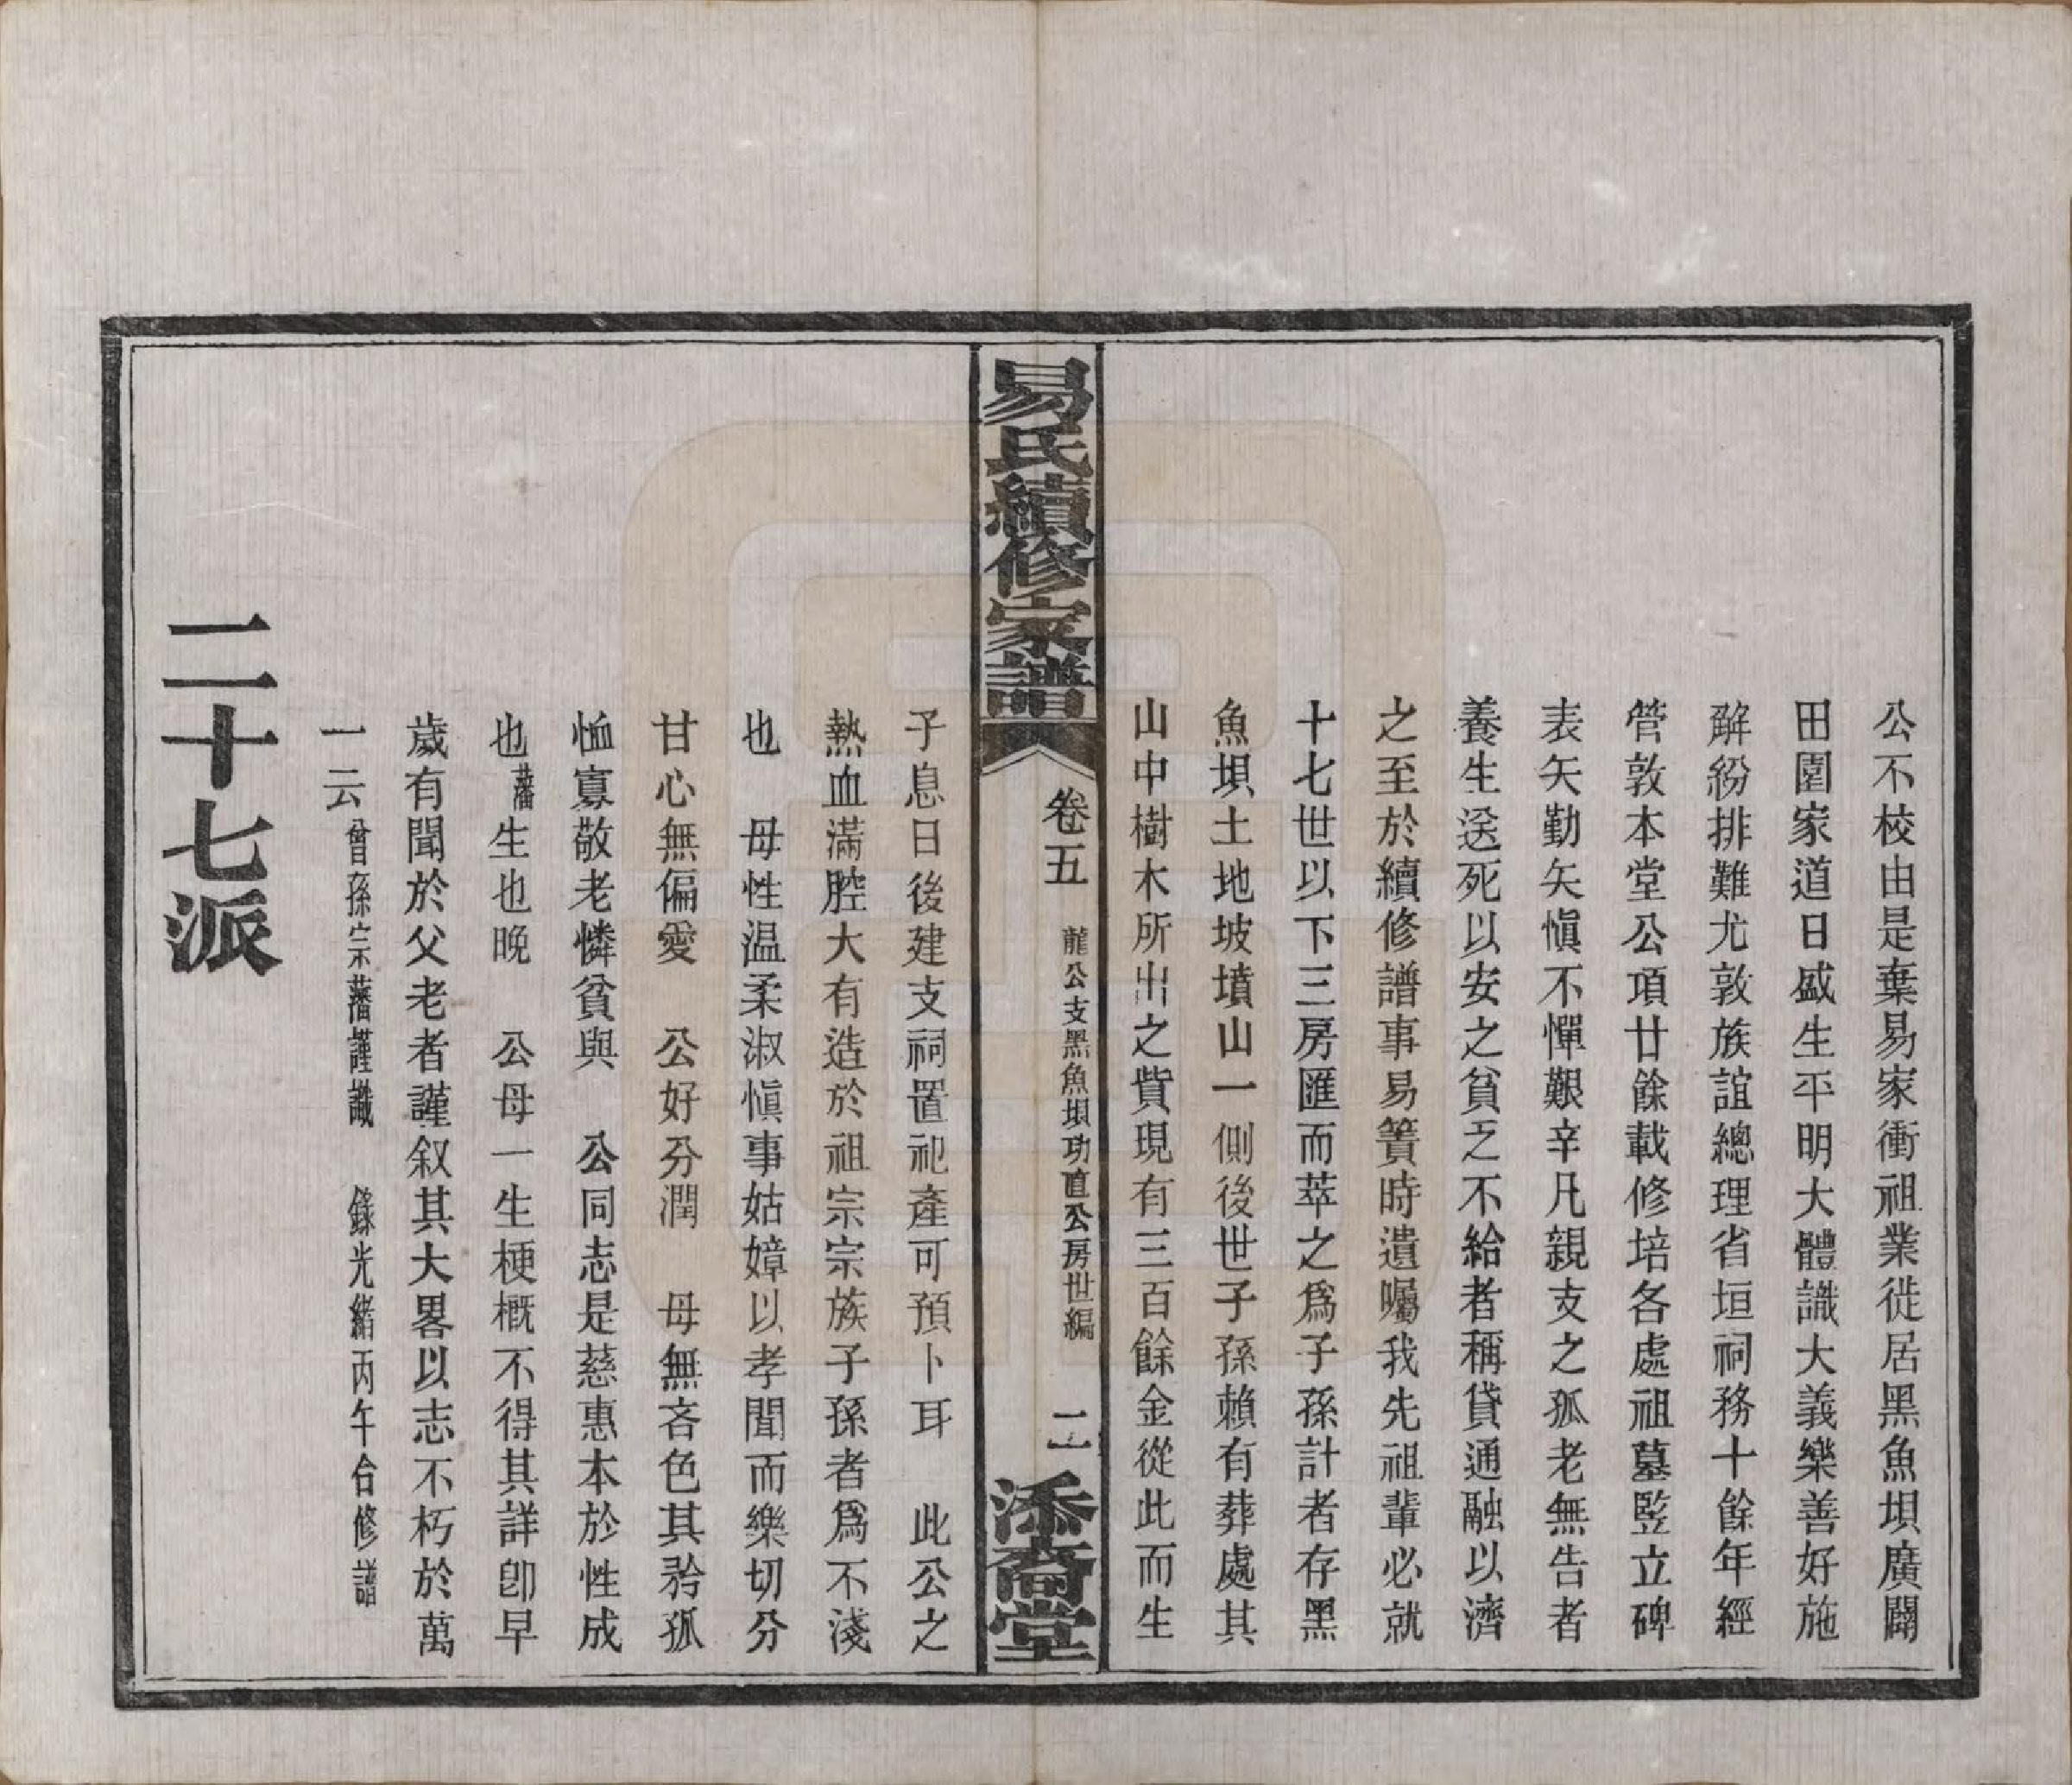 公不校由是棄易家衝祖業徙居黑魚垻廣闢
田園家道日盛生平明大體識大義樂善好施
解紛排難尤敦族誼總理省垣祠務十餘年經
管敦本堂公項廿餘載修培各處祖墓竪立碑
表矢勤矢愼不憚艱辛凡親支之孤老無告者
養生送死以安之貧乏不給者稱貸通融以濟
之至於續修譜事易簀時遺囑我先祖輩必就
十七世以下三房匯而萃之爲子孫計者存黑
魚垻土地坡墳山一側後世子孫賴有葬處其
山中樹木所出之貲現有三百餘金從此而生
易氏續修家譜
卷五
龍公支黑魚垻功直公房世編
二
添裔堂
子息日後建支祠置祀產可預卜耳 此公之
熱血滿腔大有造於祖宗宗族子孫者爲不淺
也 母性温柔淑愼事姑嫜以孝聞而樂切分
甘心無偏愛 公好分潤 母無吝色其矜孤
恤寡敬老憐貧與 公同志是慈惠本於性成
也藩生也晚 公母一生梗概不得其詳卽早
歲有聞於父老者謹叙其大畧以志不朽於萬
一云曾孫宗藩謹識 錄光緒丙午合修譜
二十七派